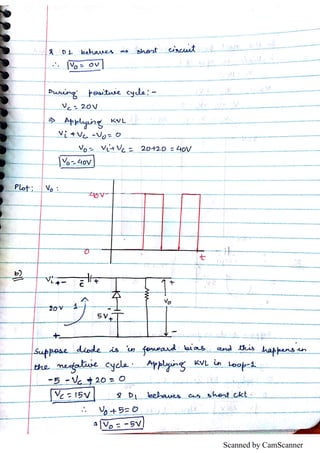 & D1 behaves as short circuit
∴ Vo = 0V
During positive cycle:-
Vc = 20V
⇒ Applying KVL
Vi + Vc - Vo = 0
Vo = Vi + Vc = 20+20 = 40V
Vo = 40V
Plot: Vo:
40V
0
t
b)
Vi + -
C
+
20V
1
5V
Vo
+
-
Suppose diode is in forward bias and this happens in
the negative cycle. Applying KVL in Loop-1
-5 - Vc + 20 = 0
Vc = 15V & D1 behaves as short ckt.
∴ Vo + 5 = 0
Vo = -5V
Scanned by CamScanner